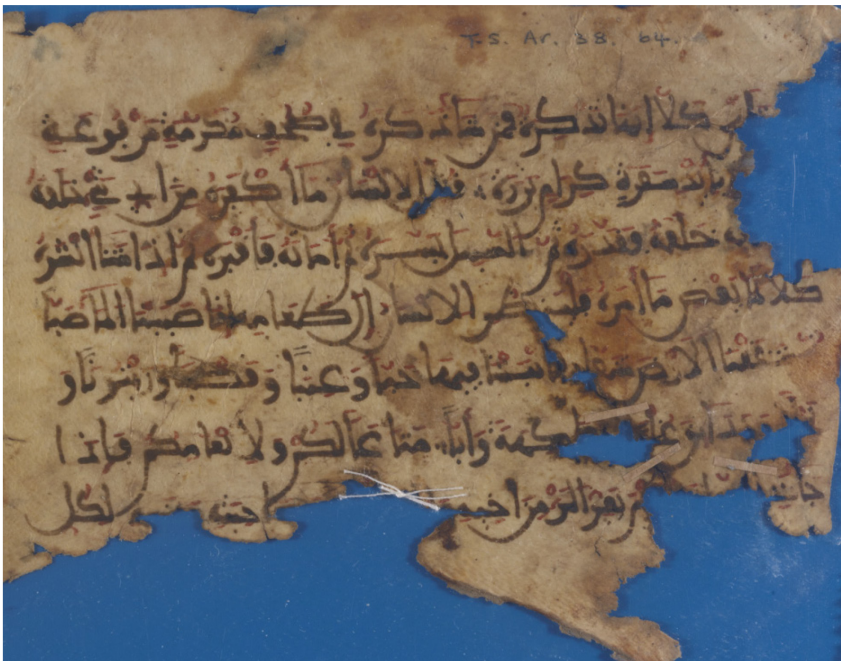 T-S. Ar. 38. 64.
كلا انها تذكرة فمن شا ذكره في صحف مكرمة مرفوعة
بايد سفرة كرام بررة قتل الانسن ما اكفره من ا شي خلقه
خلقه فقدره ثم السبيل يسره ثم اماته فاقبره ثم اذا شا انشره
كلا لما يقض ما امره فلينظر الانسن الى طعامه انا صببنا الما صبا
شققنا الارض شقا فانبتنا فيها حبا وعنبا وقضبا وزيتونا و
نخلا وحدايق فكهة وأبا متاعا لكم ولانعامكم فاذا
جات يفر المر من اخيه حبته لكل